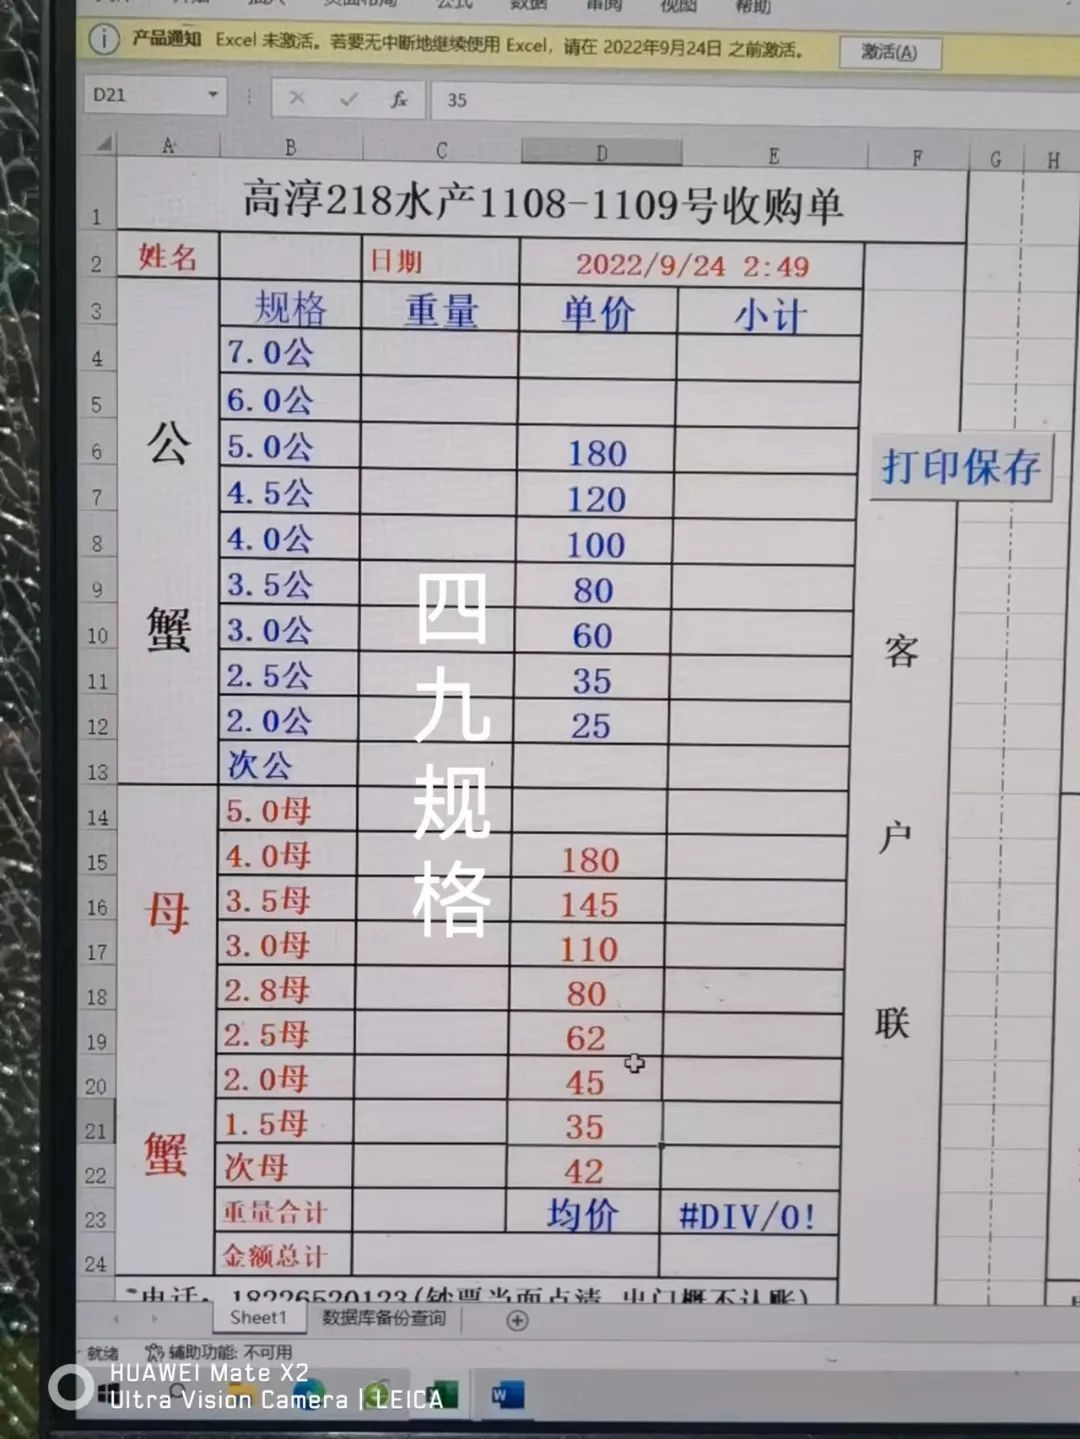 产品通知 Excel 未激活。若要无中断地继续使用 Excel，请在 2022年9月24日 之前激活。 激活(A)
D21 fx 35
A B C D E F G H
1 高淳218水产1108-1109号收购单
2 姓名 日期 2022/9/24 2:49
3 规格 重量 单价 小计
4 7.0公
5 6.0公
6 5.0公 180
打印保存
7 4.5公 120
8 4.0公 100
9 3.5公 80
10 3.0公 60
11 2.5公 35
12 2.0公 25
13 次公
公蟹
14 5.0母
15 4.0母 180
16 3.5母 145
17 3.0母 110
18 2.8母 80
19 2.5母 62
20 2.0母 45
21 1.5母 35
22 次母 42
母蟹
23 重量合计 均价 #DIV/0!
24 金额总计
客户联
四九规格
电话：18226520123(钞票当面点清 出门概不认账)
Sheet1 数据库备份查询
就绪 辅助功能: 不可用
HUAWEI Mate X2
Ultra Vision Camera | LEICA